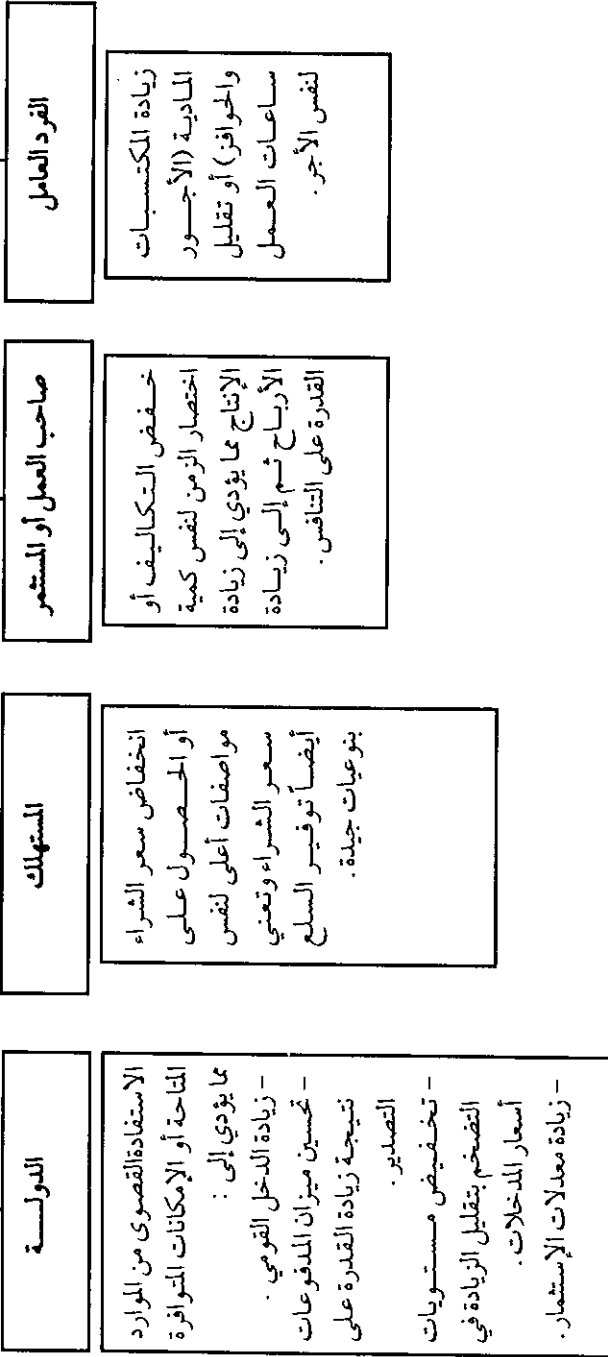 الفرد العامل
زيادة المكتسبات
المادية (الأجور
والحوافز) أو تقليل
ساعات العمل
لنفس الأجر.
صاحب العمل أو المستثمر
خفض التكاليف أو
اختصار الزمن لنفس كمية
الإنتاج مما يؤدي إلى زيادة
الأرباح ثم إلى زيادة
القدرة على التنافس.
المستهلك
انخفاض سعر الشراء
أو الحصول على
مواصفات أعلى لنفس
سعر الشراء وتعني
أيضاً توفير السلع
بنوعيات جيدة.
الدولة
الاستفادة القصوى من الموارد
المتاحة أو الإمكانات المتوافرة
مما يؤدي إلى :
- زيادة الدخل القومي.
- تحسين ميزان المدفوعات
نتيجة زيادة القدرة على
التصدير.
- تخفيض مستويات
التضخم بتقليل الزيادة في
أسعار المدخلات.
- زيادة معدلات الإستثمار.